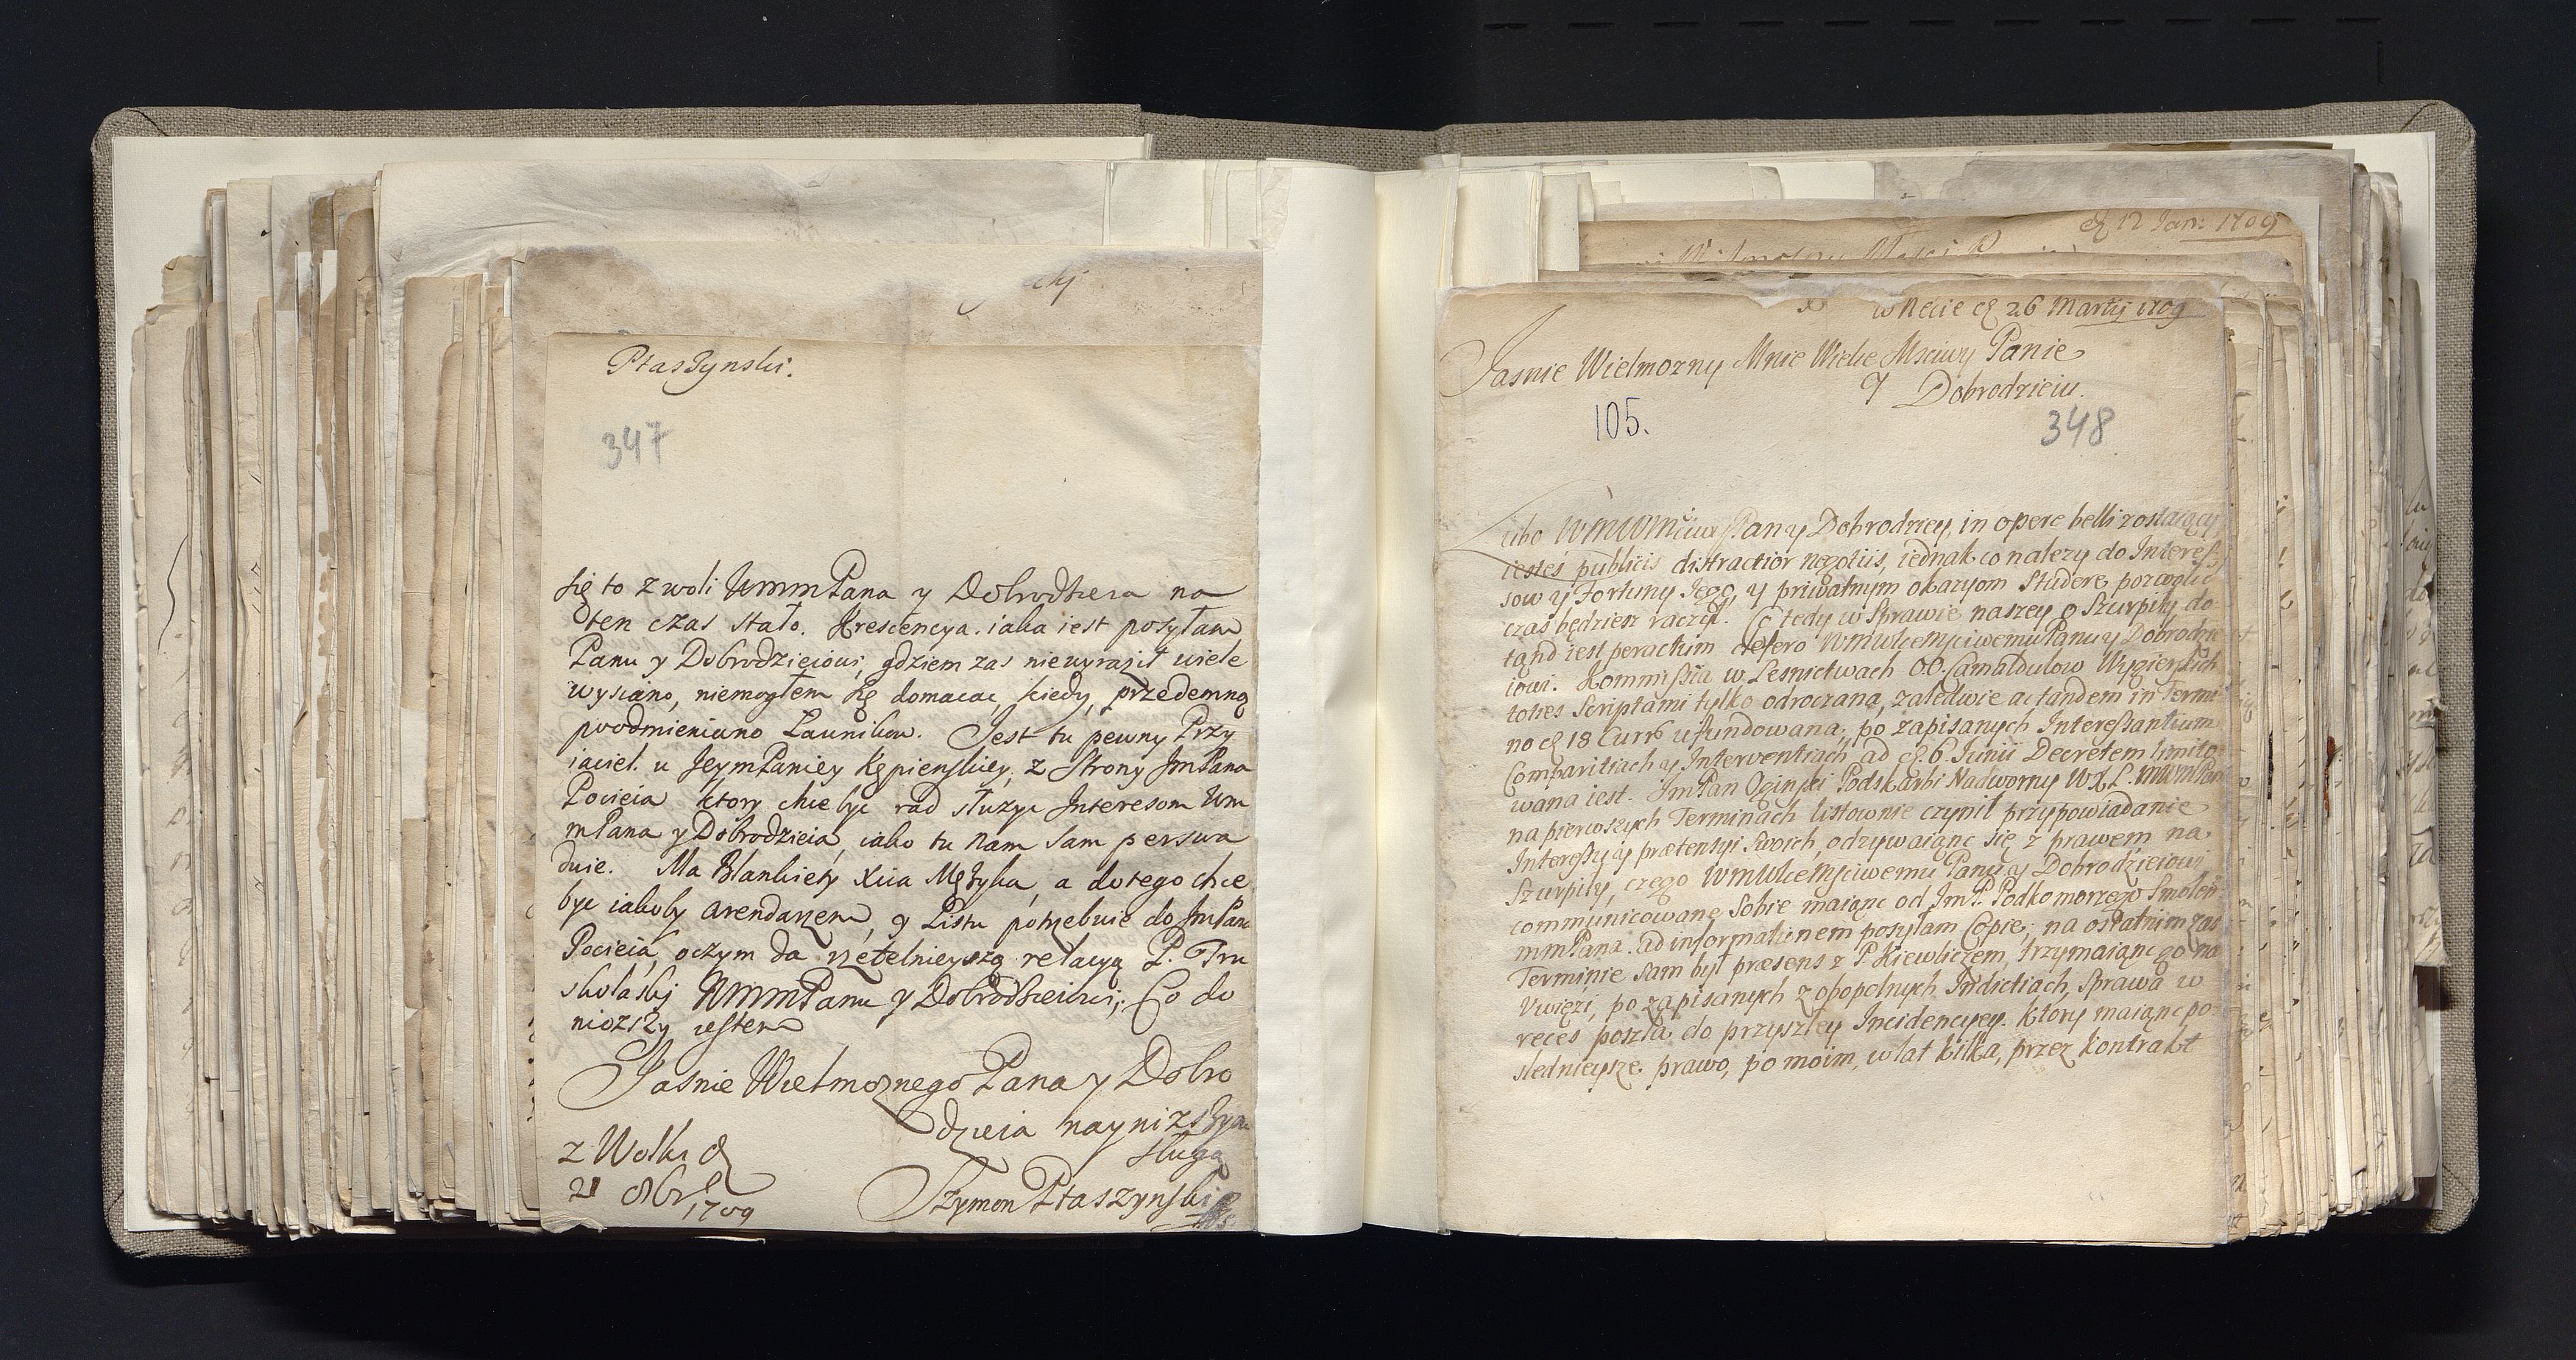 Ptaszynski.
347
się to z woli WmmPana y Dobrodzieia na
ten czas stało. Krescencya iaka iest posyłam
Panu y Dobrodzieiowi, gdziem zas niewyraził wiele
wysiano, niemogłem się domacac, kiedy, przedemną
poodmieniano Launikow. Jest tu pewny Przy
iaciel u JeymPaniey Kępienskiey, z Strony JmPana
Pocieia ktory chce byc rad słuzyc Interesom Wm
mPana y Dobrodzieia, iako tu nam sam perswa
duie. Ma Blankiety Xcia Mężyka, a do tego chce
byc iakoby arendarzem, y Listu potrzebuie do JmPana
Pocieia, oczym da rzetelnieyszą relacyą P. Tru
skolaski WmmPanu y Dobrodzieiowi; Co do
niozszy iestem
Jasnie Wielmoznego Pana y Dobro
dzieia naynizszym
sługą
z Wolki d
21 8br 1709
Szymon Ptaszynski
d 12 Jan: 1709
w Recie d 26 Martij 1709
Jasnie Wielmozny Mnie Wielce Msciwy Panie
y Dobrodzieiu.
105.
348
Lubo WMWMciwy Pan y Dobrodziey, in opere belli zostaiący
iesteś publicis distractior negotiis, iednak co nalezy do Interes-
sow y Fortuny Jego, y priwatnym okazyom studere pozwolic
czas będziesz raczył. Co tedy w Sprawie naszey o Szurpiły do-
tand iest peractum defero WMWielceMsciwemu Panu y Dobrodzie
iowi. Kommissia w Lesnictwach OO. Camaldulow Wygierskich
toties Scriptami tylko odroczana, zaledwie ac tandem in Termi
no d 18 Curr ufundowana, po zapisanych Interessantium
Comparitiach y Interventiach, ad d. 6 Junii Decretem limito
wana iest. JmPan Oginski Podskarbi Nadworny WXL. MWMPan
na pierwszych Terminach listownie czynił przypowiadanie
Interessu y prætensyi swoich, odzywaiąc się z prawem na
Szurpiły, czego WMWielceMsciwemu Panu y Dobrodzieiowi
communicowaną sobie maiąc od JmP. Podkomorzego Smolen
mmPana. ad informationem posyłam Copię; na ostatnim zas
Terminie sam był præsens z P. Kiewliczem, trzymaiąc go na
Uwięzi, po zapisanych z obopolnych Indictiach, Sprawa w
reces poszła do przyszłey Incidencyey. ktory maiąc po
slednieysze prawo, po moim, w lat kilka, przez kontrakt